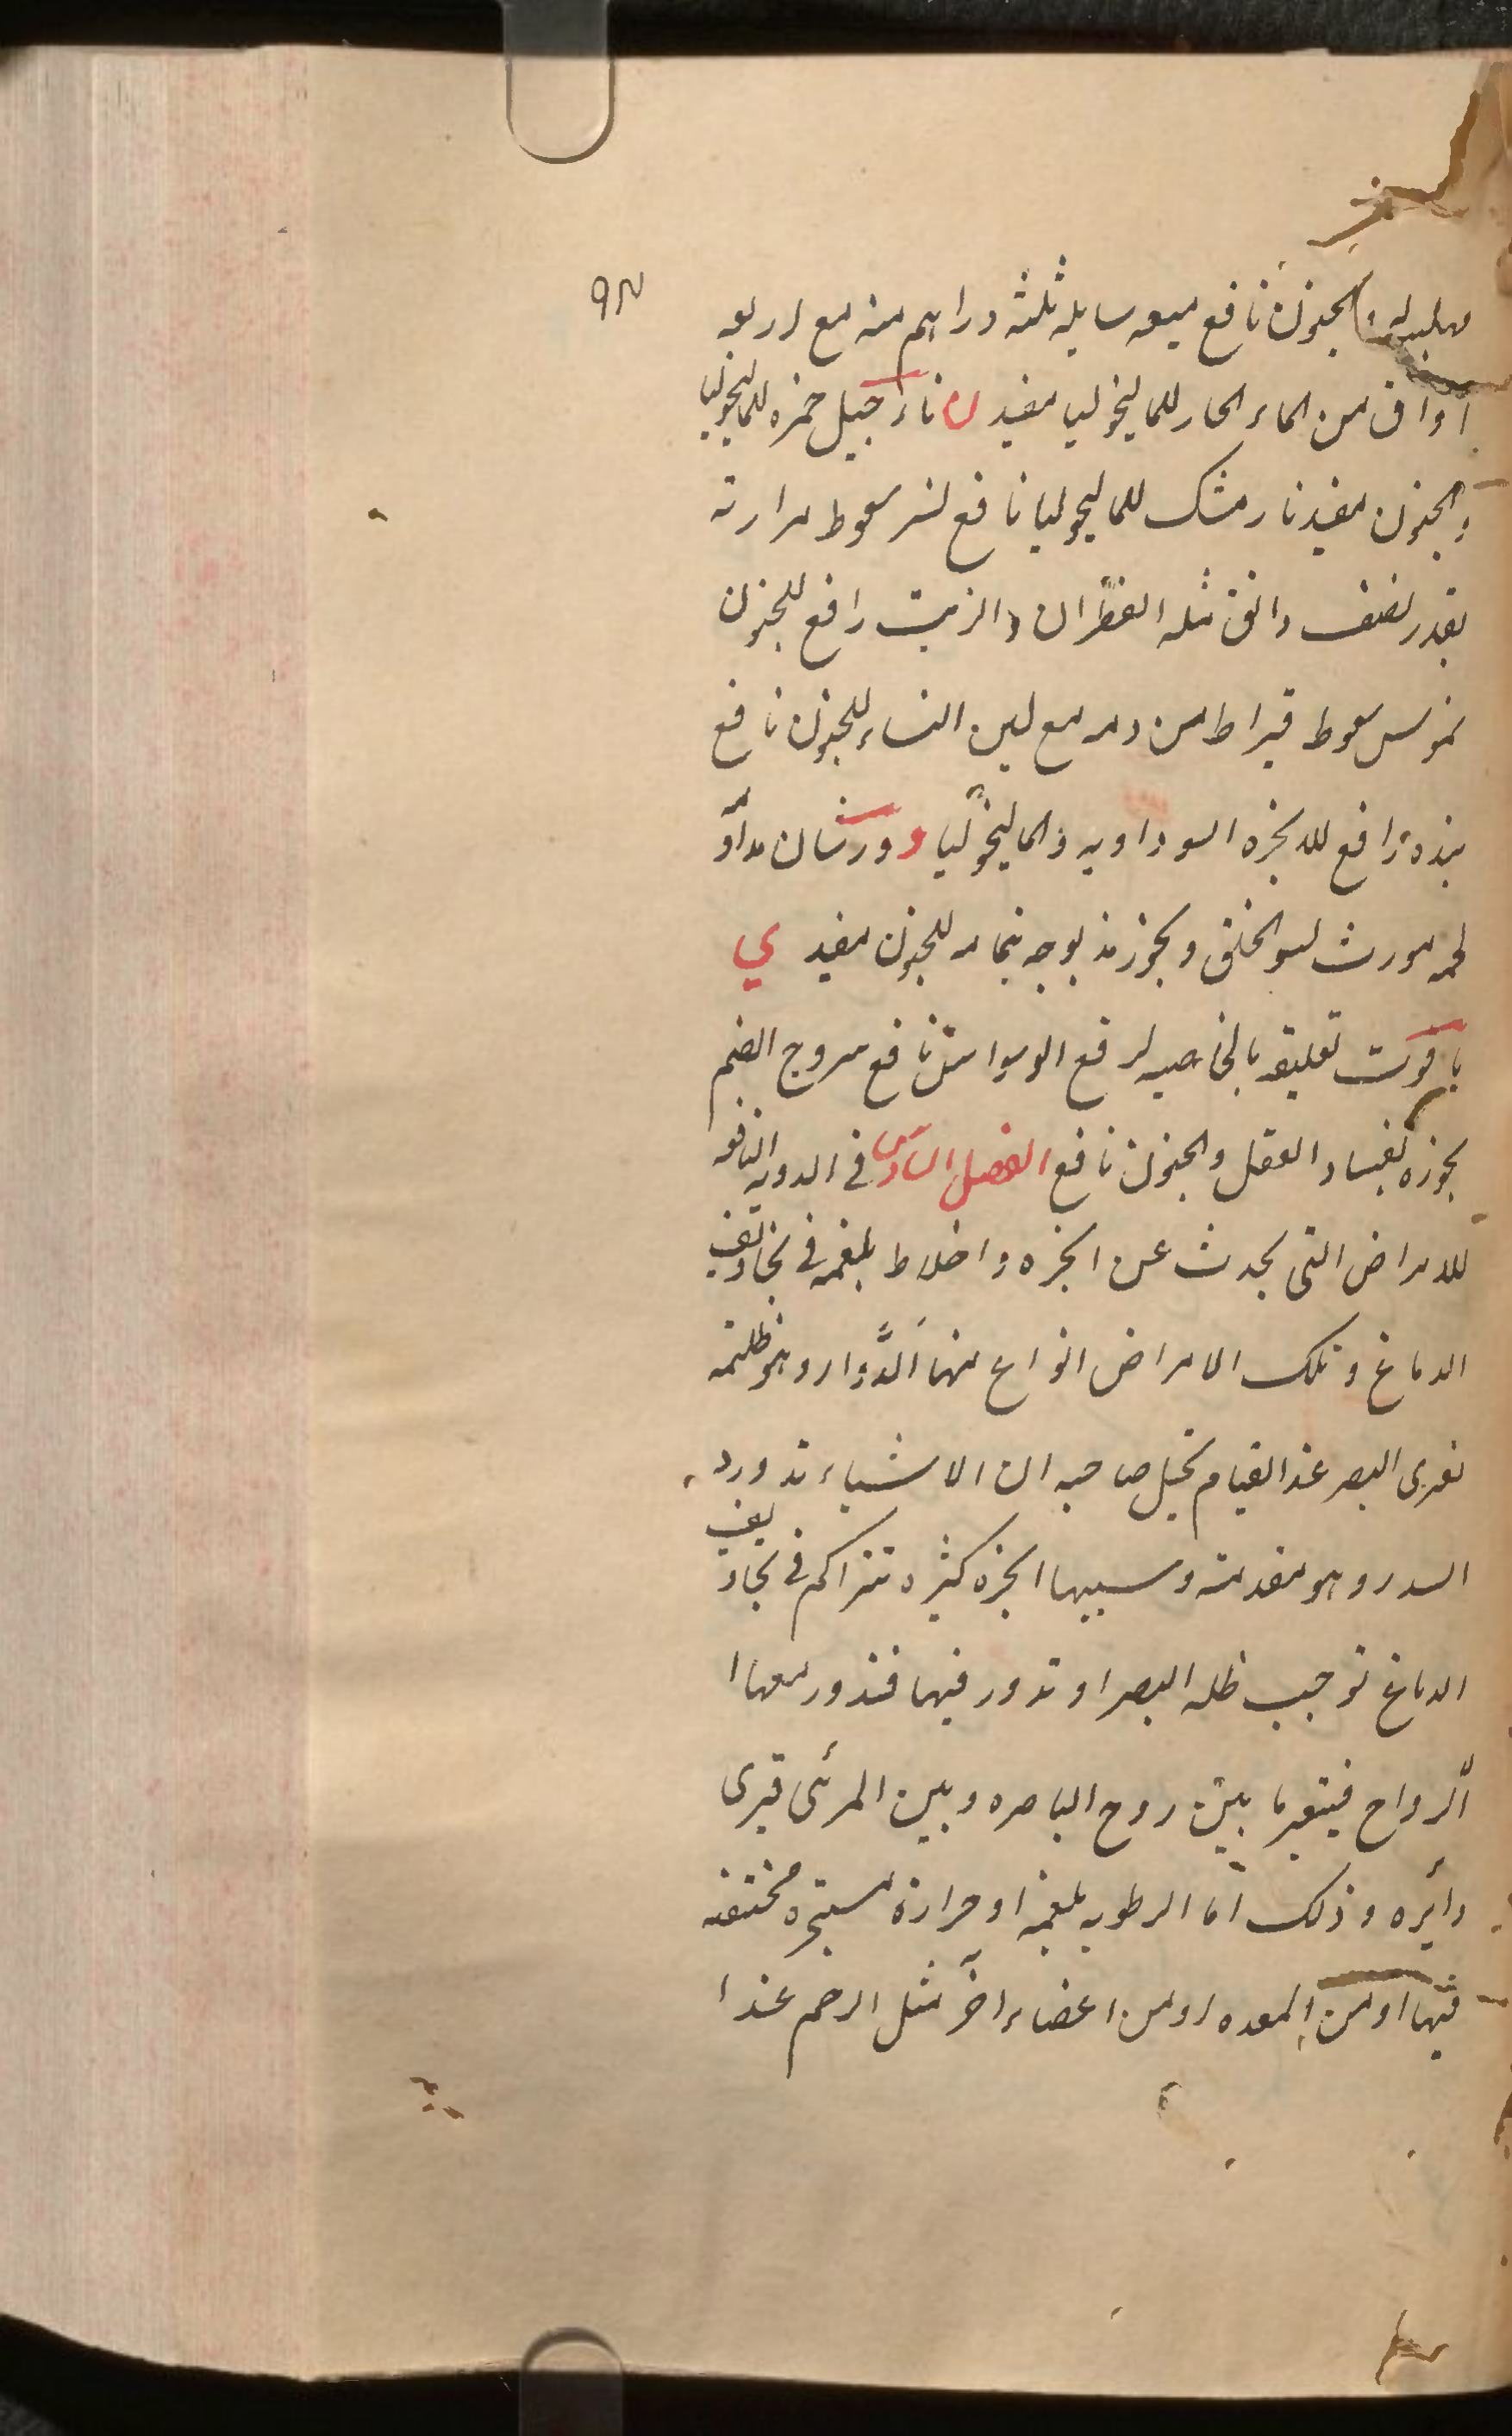 ٩٣
الجنون نافع ميعه سايله ثلثه دراهم منه مع اربعه
اواق من الماء الحار للماليخوليا مفيد ن نارجيل خمره للماليخوليا
والجنون مفيد نارمشك للماليخوليا نافع نسر سعوط مرارته
بقدر نصف دانق مثله القطران والزيت رافع للجنون
نموس سعوط قيراط من دمه مع لبن النساء للجنون نافع
رافع للابخره السوداويه والماليخوليا و ورشان
لحمه مورث لسو الخلق وبخور للجنون مفيد ي
ياقوت تعليقه بالخاصيه لرفع الوسواس نافع يبروج الصنم
بخوره لفساد العقل والجنون نافع الفصل السادس فى الادويه النافعه
للامراض التى يحدث عن ابخره و اخلاط بلغميه فى تجاويف
الدماغ و تلك الامراض انواع منها الدوار وهو ظلمه
تعرى البصر عند القيام تخيل صاحبه ان الاشياء تدور و
السدر وهو مقدمته وسببها ابخره كثيره تتراكم فى تجاويف
الدماغ توجب ظلمه البصر او تدور فيها فتدور معها ا
الرواح فيتغير ما بين روح الباصره وبين المرئى فيرى
دائره وذلك اما الرطوبه بلغميه او حراره مستبخره مختنقه
فيها او من المعده او من اعضاء اخر مثل الرحم عند ا